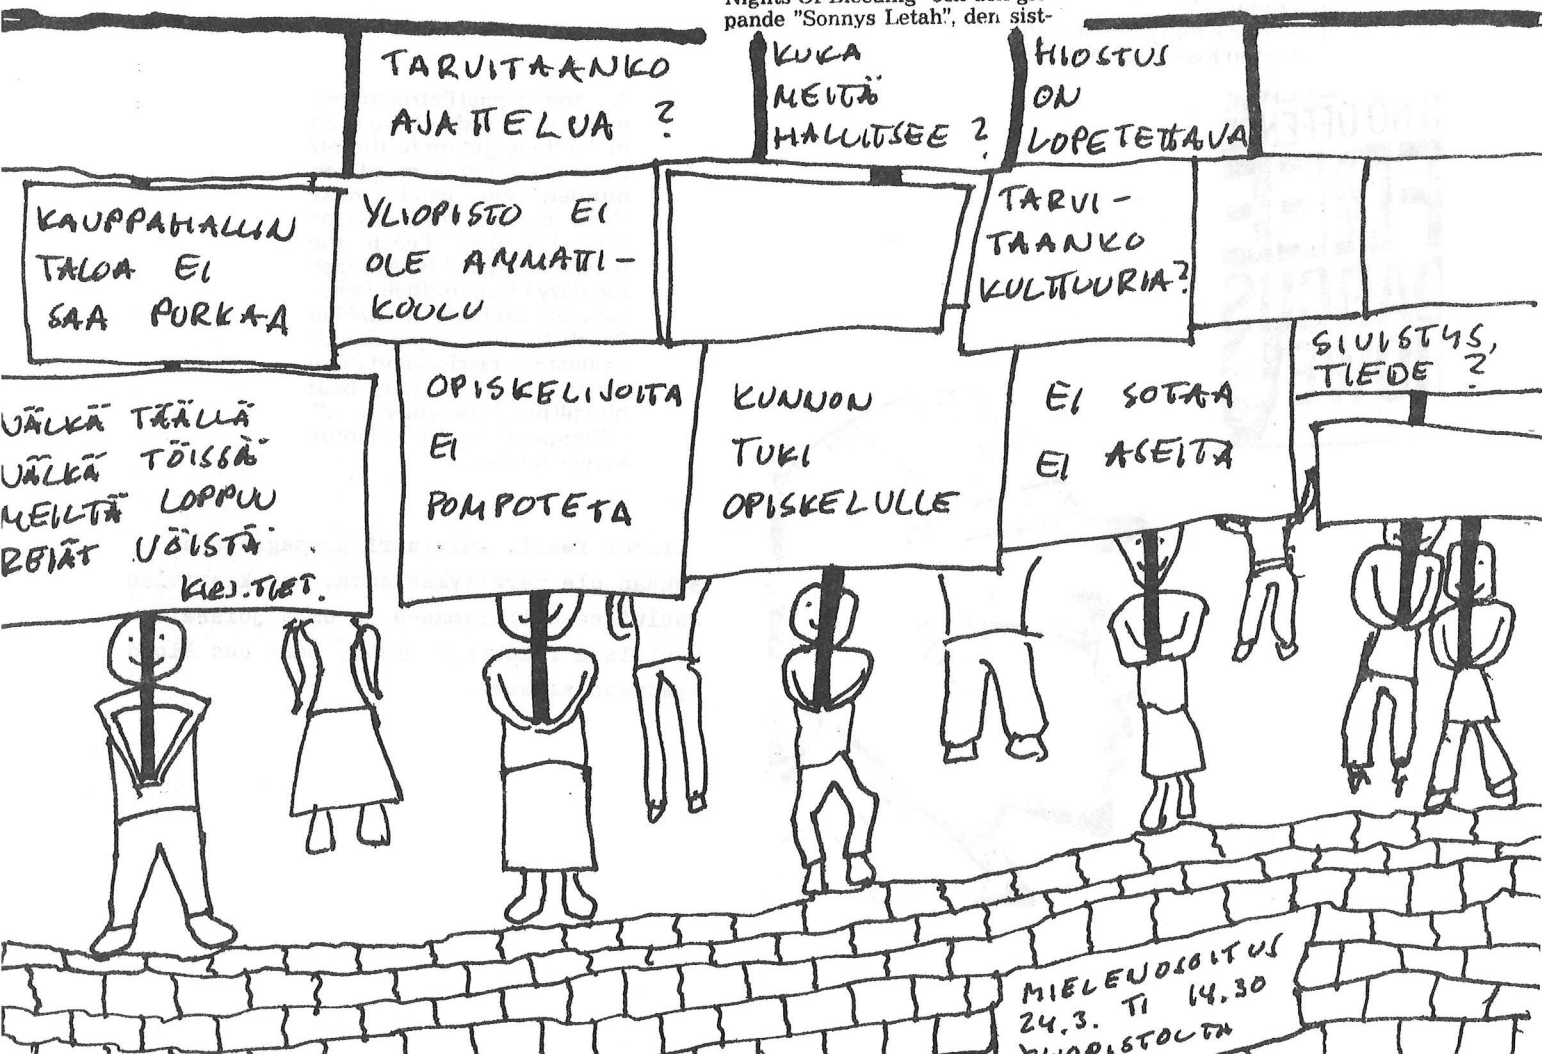 pande "Sonnys Letah", den sist-
TARVITAANKO
AJATTELUA ?
KUKA
MEITÄ
HALLITSEE ?
HIOSTUS
ON
LOPETETTAVA
KAUPPAHALLIN
TALOA EI
SAA PURKAA
YLIOPISTO EI
OLE AMMATTI-
KOULU
TARVI-
TAANKO
KULTTUURIA?
SIVISTYS,
TIEDE ?
VÄLKÄ TÄÄLLÄ
VÄLKÄ TÖISSÄ
MEILTÄ LOPPUU
REIÄT VÖISTÄ.
KIRJ.TIET.
OPISKELIJOITA
EI
POMPOTETA
KUNNON
TUKI
OPISKELULLE
EI SOTAA
EI ASEITA
MIELENOSOITUS
24.3. TI 14.30
YLIOPISTOLTA